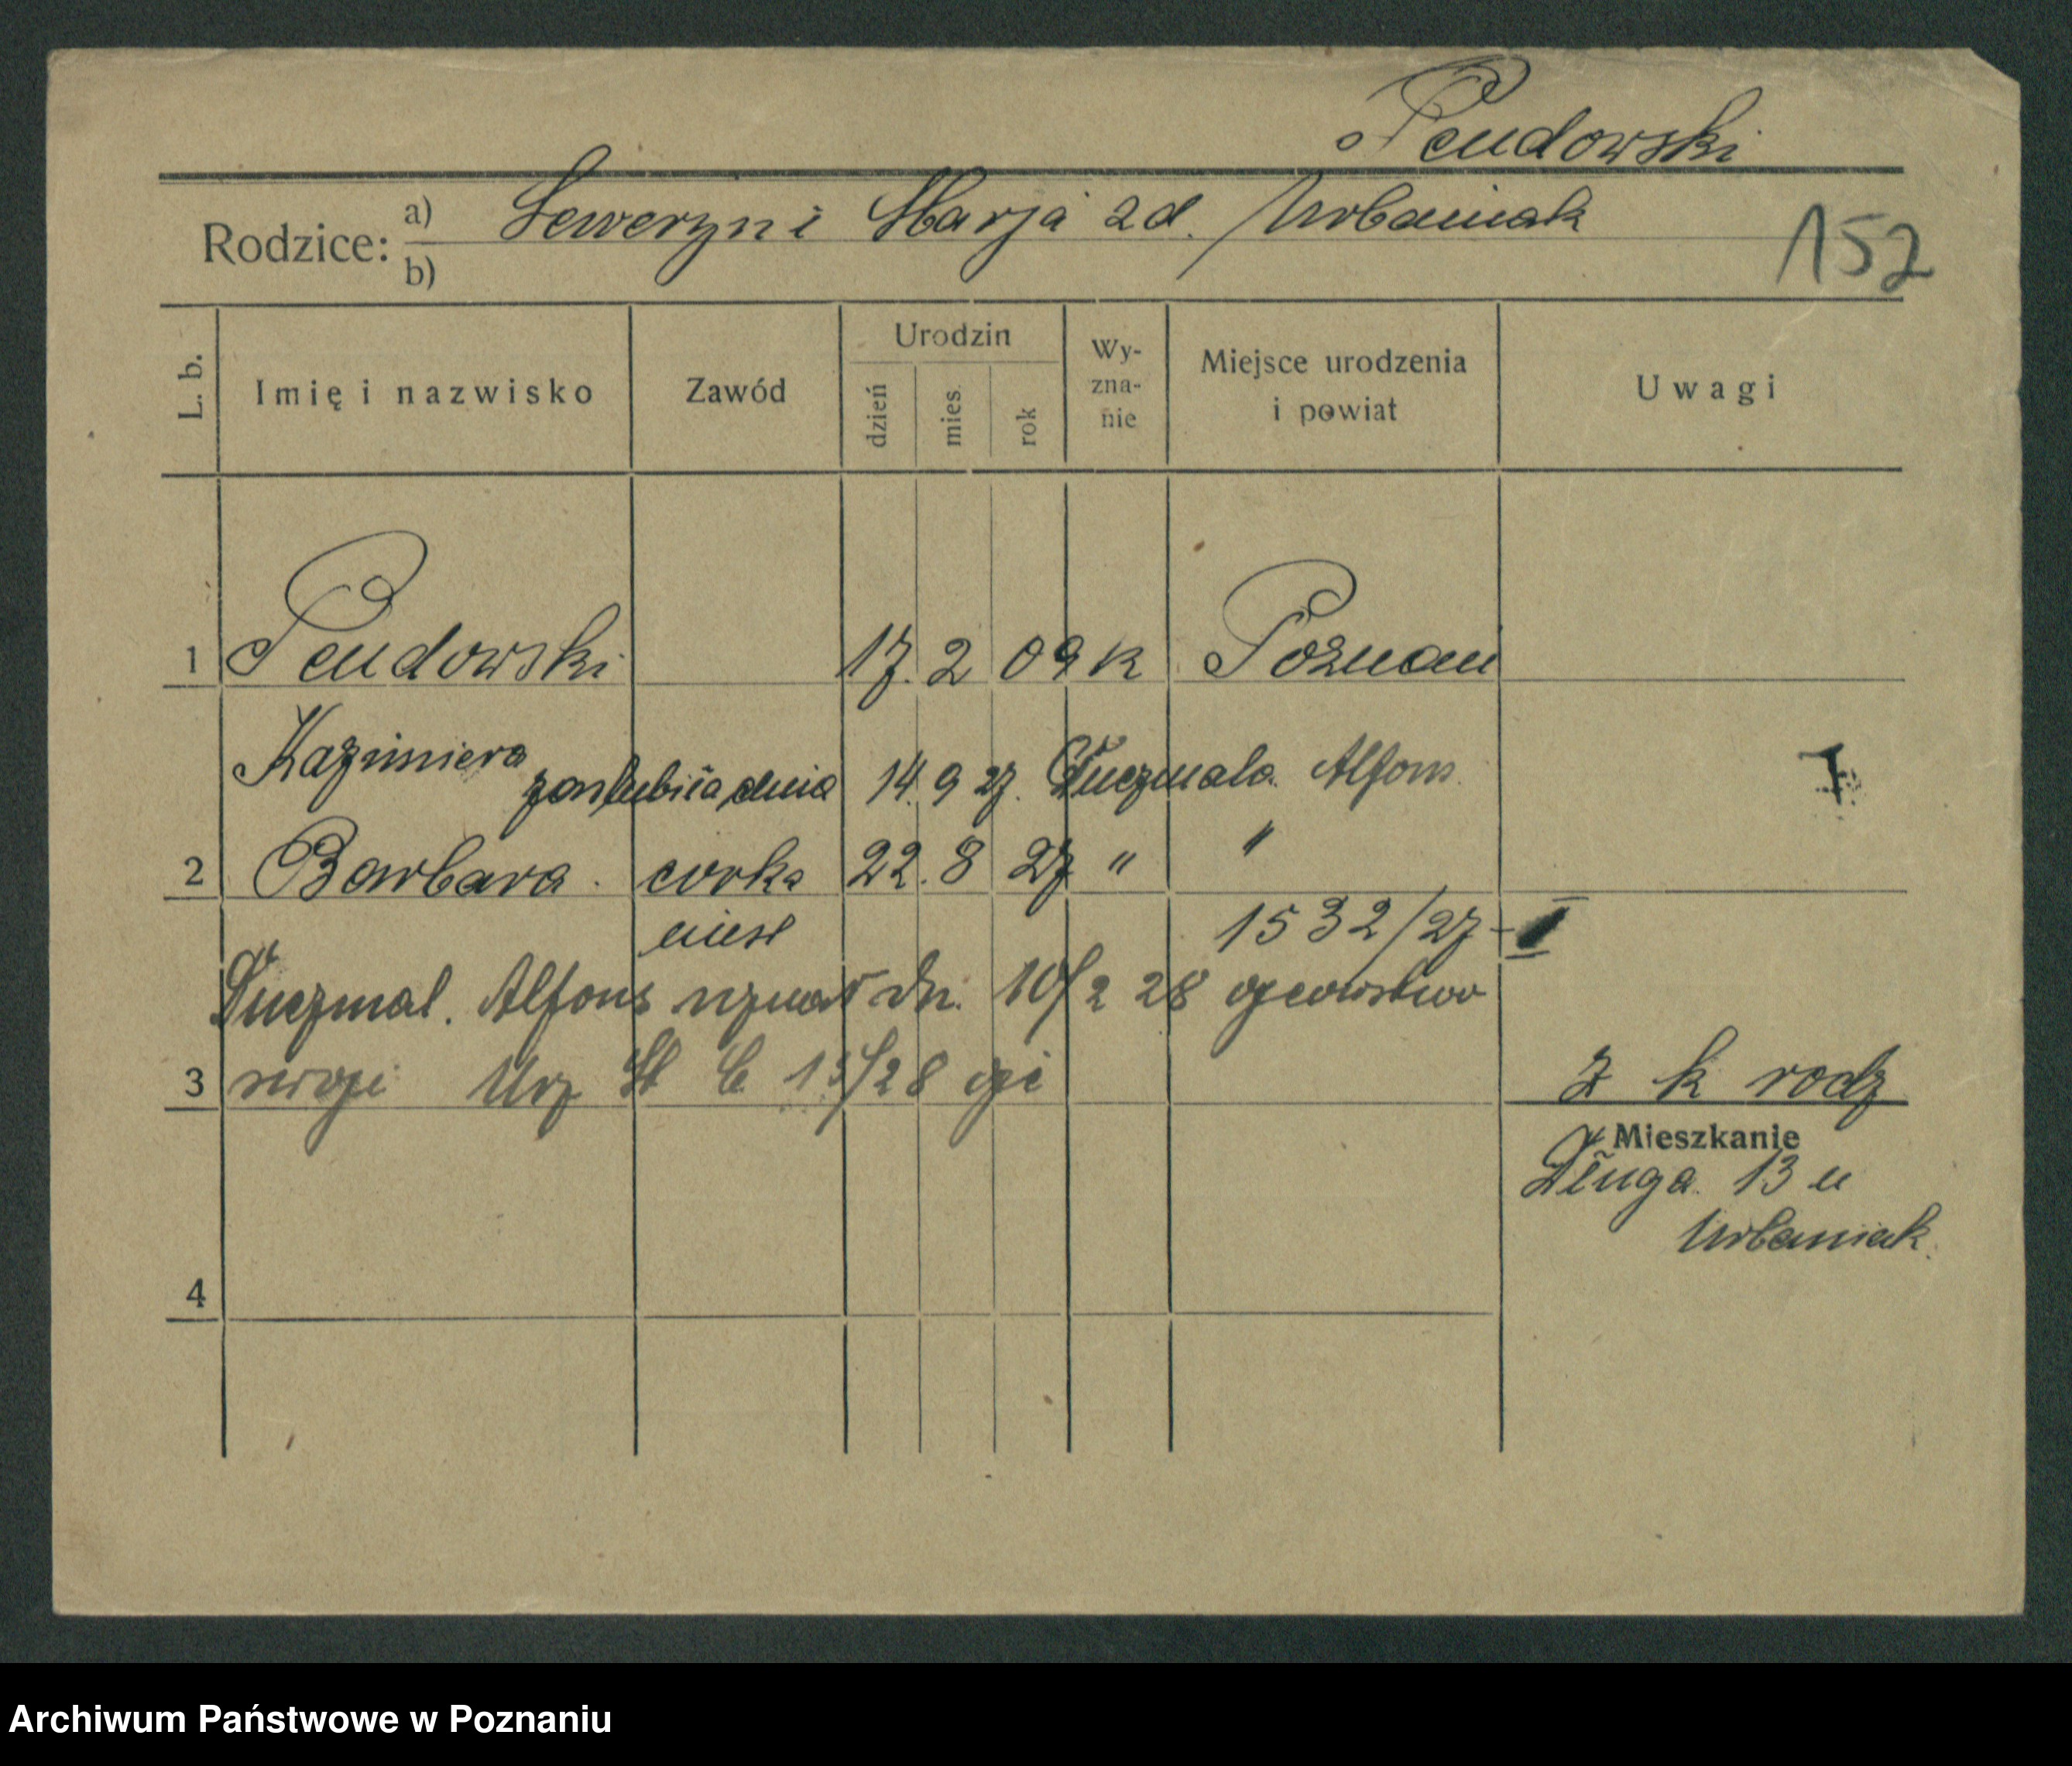 Peudowski
Rodzice: a) Seweryn i Marja zd. Urbaniak
b)
152
L. b.
Imię i nazwisko
Zawód
Urodzin
dzień
mies.
rok
Wy-
zna-
nie
Miejsce urodzenia
i powiat
Uwagi
1 Peudowski 17. 2 09 k Poznań
Kazimiera zaślubiła dnia 14. 9 27. Duczmala Alfons
2 Barbara. córka 22. 8 27 " "
nieśl 1532/27 - I
Duczmal. Alfons uznał dn. 10/2 28 ojcowstwo
3 swoje Urz St C 13/28
z k rodz
Mieszkanie
Długa 13 u
Urbaniak.
4
Archiwum Państwowe w Poznaniu